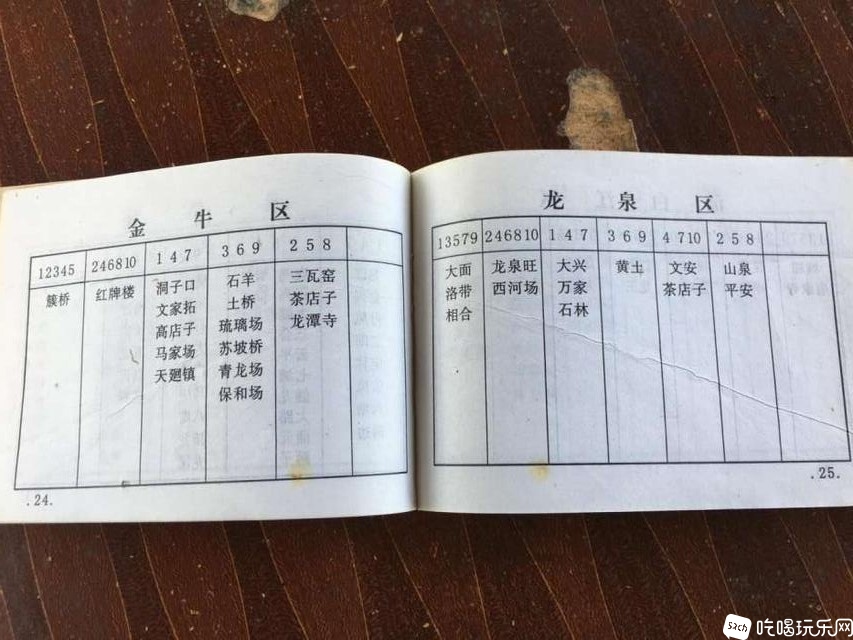 金牛区
12345 246810 1 4 7 3 6 9 2 5 8
簇桥 红牌楼 洞子口 石羊 三瓦窑
文家拓 土桥 茶店子
高店子 琉璃场 龙潭寺
马家场 苏坡桥
天廻镇 青龙场
保和场
.24.
龙泉区
13579 246810 1 4 7 3 6 9 4 7 10 2 5 8
大面 龙泉旺 大兴 黄土 文安 山泉
洛带 西河场 万家 茶店子 平安
相合 石林
.25.
5ach 吃喝玩乐网